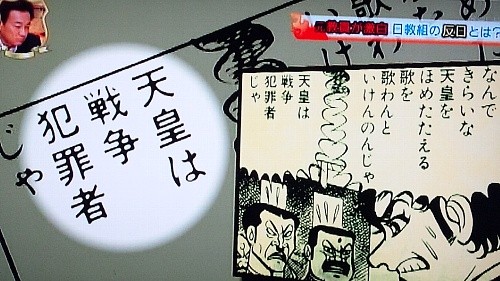 元教員が激白 日教組の反日とは?
天皇は
戦争
犯罪者
じゃ
なんで
きらいな
天皇を
ほめたたえる
歌を
歌わんと
いけんのんじゃ
天皇は
戦争
犯罪者
じゃ